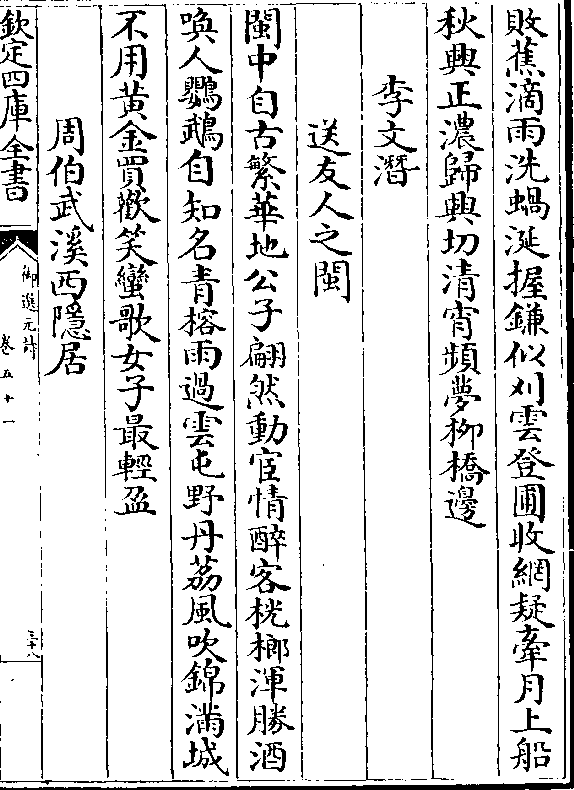 敗蕉滴雨洗蝸涎握鎌似刈雲登圃收網疑牽月上船
秋興正濃歸興切清宵頻夢柳橋邊
李文潛
送友人之閩
閩中自古繁華地公子翩然動宦情醉客桄榔渾勝酒
喚人鸚鵡自知名青榕雨過雲屯野丹荔風吹錦滿城
不用黄金買歡笑蠻歌女子最輕盈
周伯武溪西隱居
欽定四庫全書
御選元詩
卷五十一
三十八